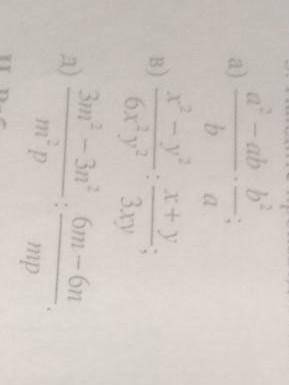 а) \frac{a^2 - ab}{b} : \frac{b^2}{a};
в) \frac{x^2 - y^2}{6x^2y^2} : \frac{x + y}{3xy};
д) \frac{3m^2 - 3n^2}{m^2p} : \frac{6m - 6n}{mp}.